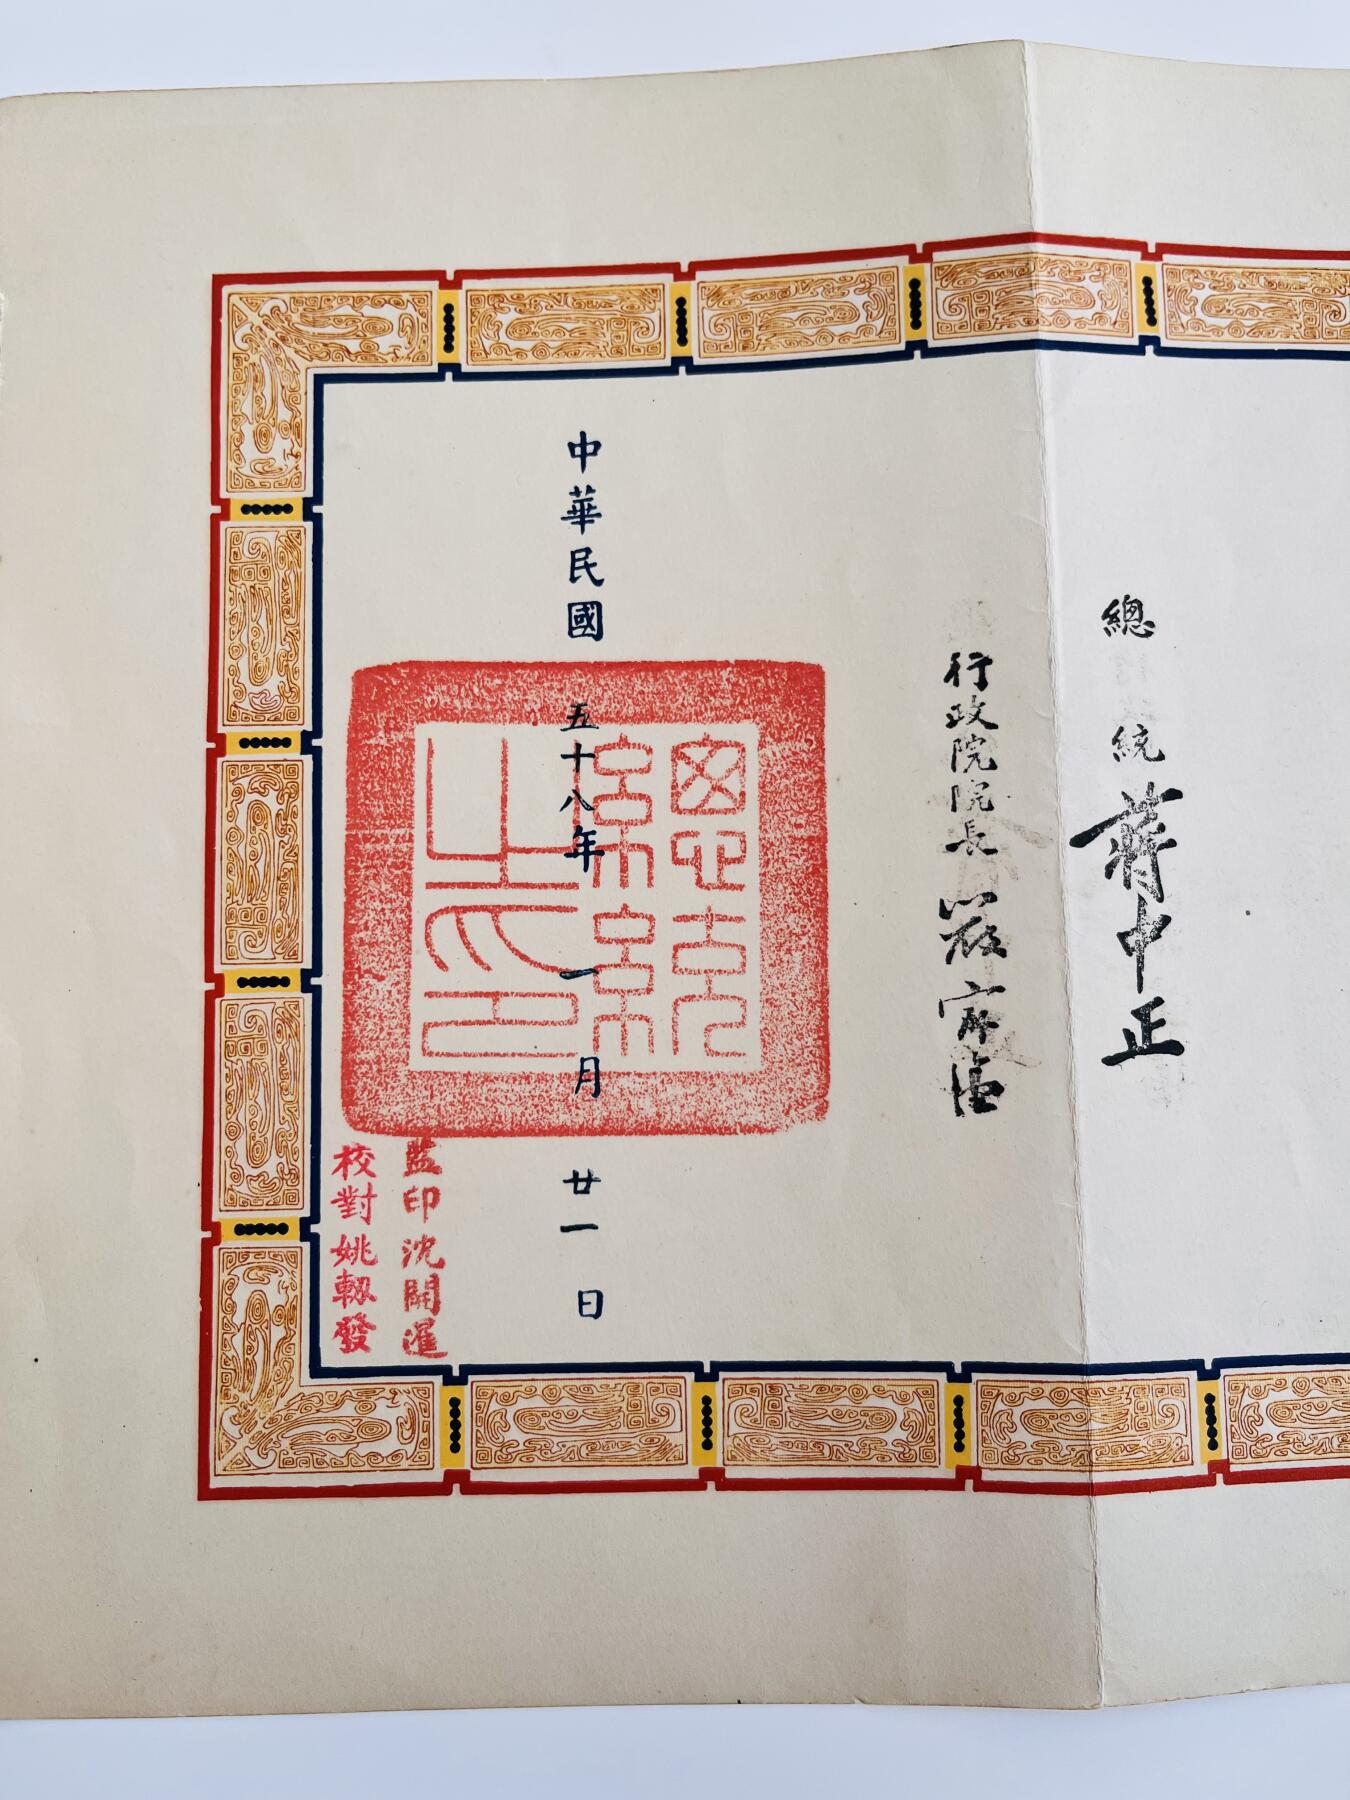 總統 蔣中正
行政院院長 嚴家淦
中華民國五十八年一月廿一日
總統之印
監印沈開暹
校對姚軔發